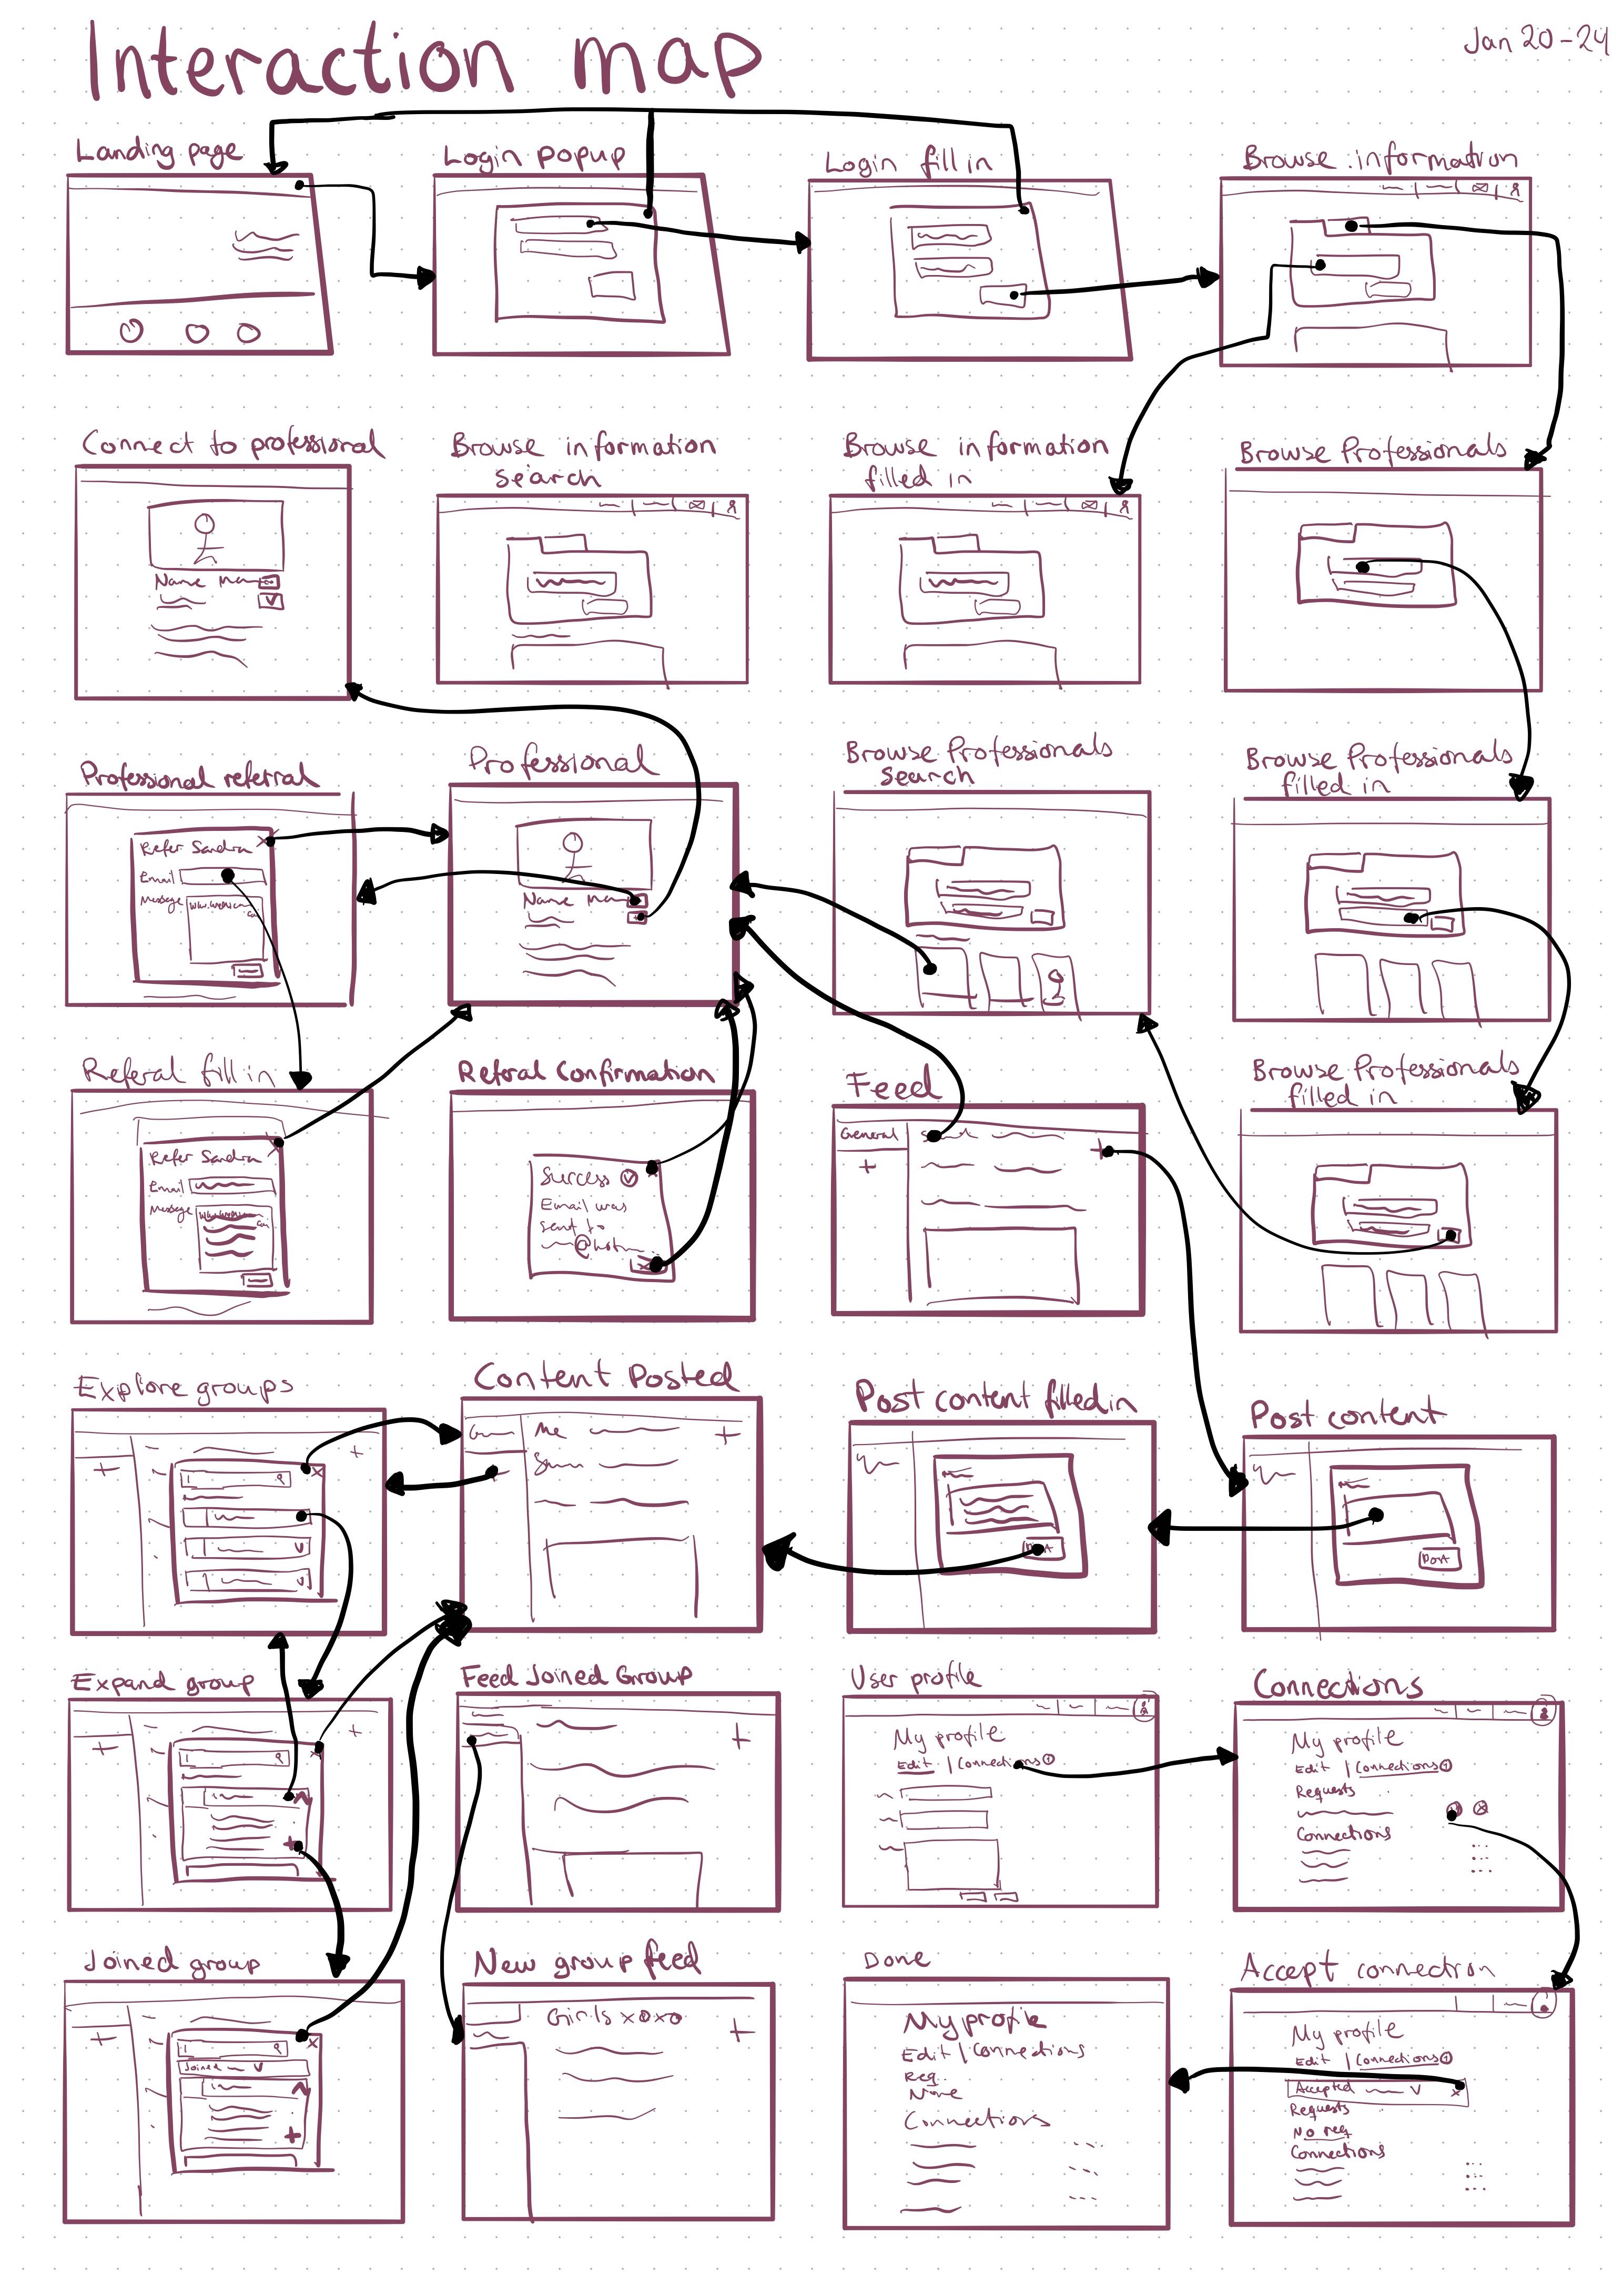 Interaction map
Jan 20-24
Landing page
Login popup
Login fill in
Browse information
Connect to professional
Name
Browse information
search
Browse information
filled in
Browse Professionals
Professional referral
Refer Sandra
Email
Message
Professional
Name
Browse Professionals
search
Browse Professionals
filled in
Referal fill in
Refer Sandra
Email
Message
Referal Confirmation
Success
Email was
sent to
@hot
Feed
General
+
+
Browse Professionals
filled in
Explore groups
+
+
Content Posted
Me
+
Post content filled in
Post
Post content
Post
Expand group
+
+
+
Feed Joined Group
+
User profile
My profile
Edit | Connections 1
Connections
My profile
Edit | Connections 1
Requests
Connections
Joined group
+
Joined
+
New group feed
Girls xoxo
+
Done
My profile
Edit | Connections
Req.
None
Connections
Accept connection
My profile
Edit | Connections 1
Accepted
Requests
No req
Connections